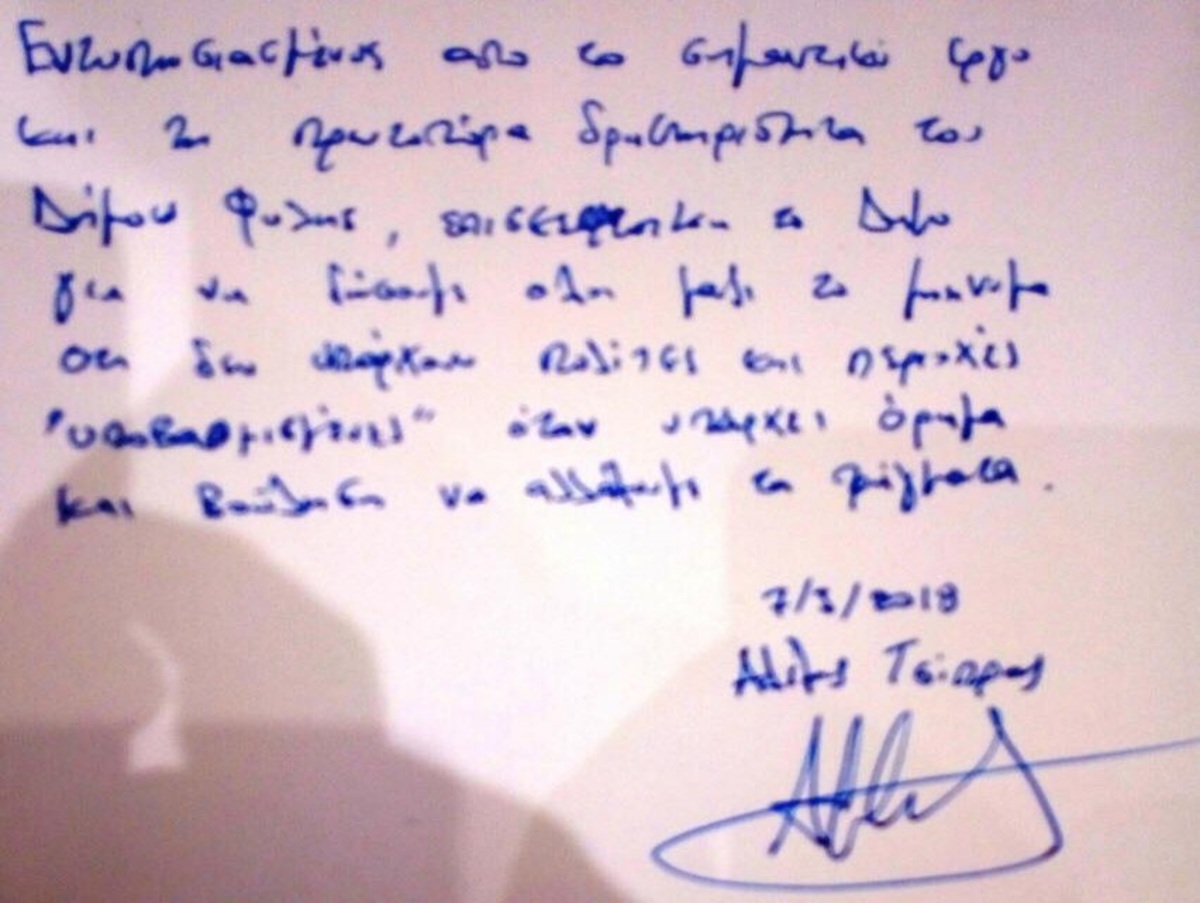 Εντυπωσιασμένος από το σημαντικό έργο
και τη πρωτοπόρα δραστηριότητα του
Δήμου Φυλής, επισκέφτηκα το Δήμο
για να δώσουμε όλοι μαζί το μήνυμα
ότι δεν υπάρχουν πολίτες και περιοχές
"υποβαθμισμένες" όταν υπάρχει όραμα
και βούληση να αλλάξουμε τα πράγματα.
7/3/2018
Αλέξης Τσίπρας